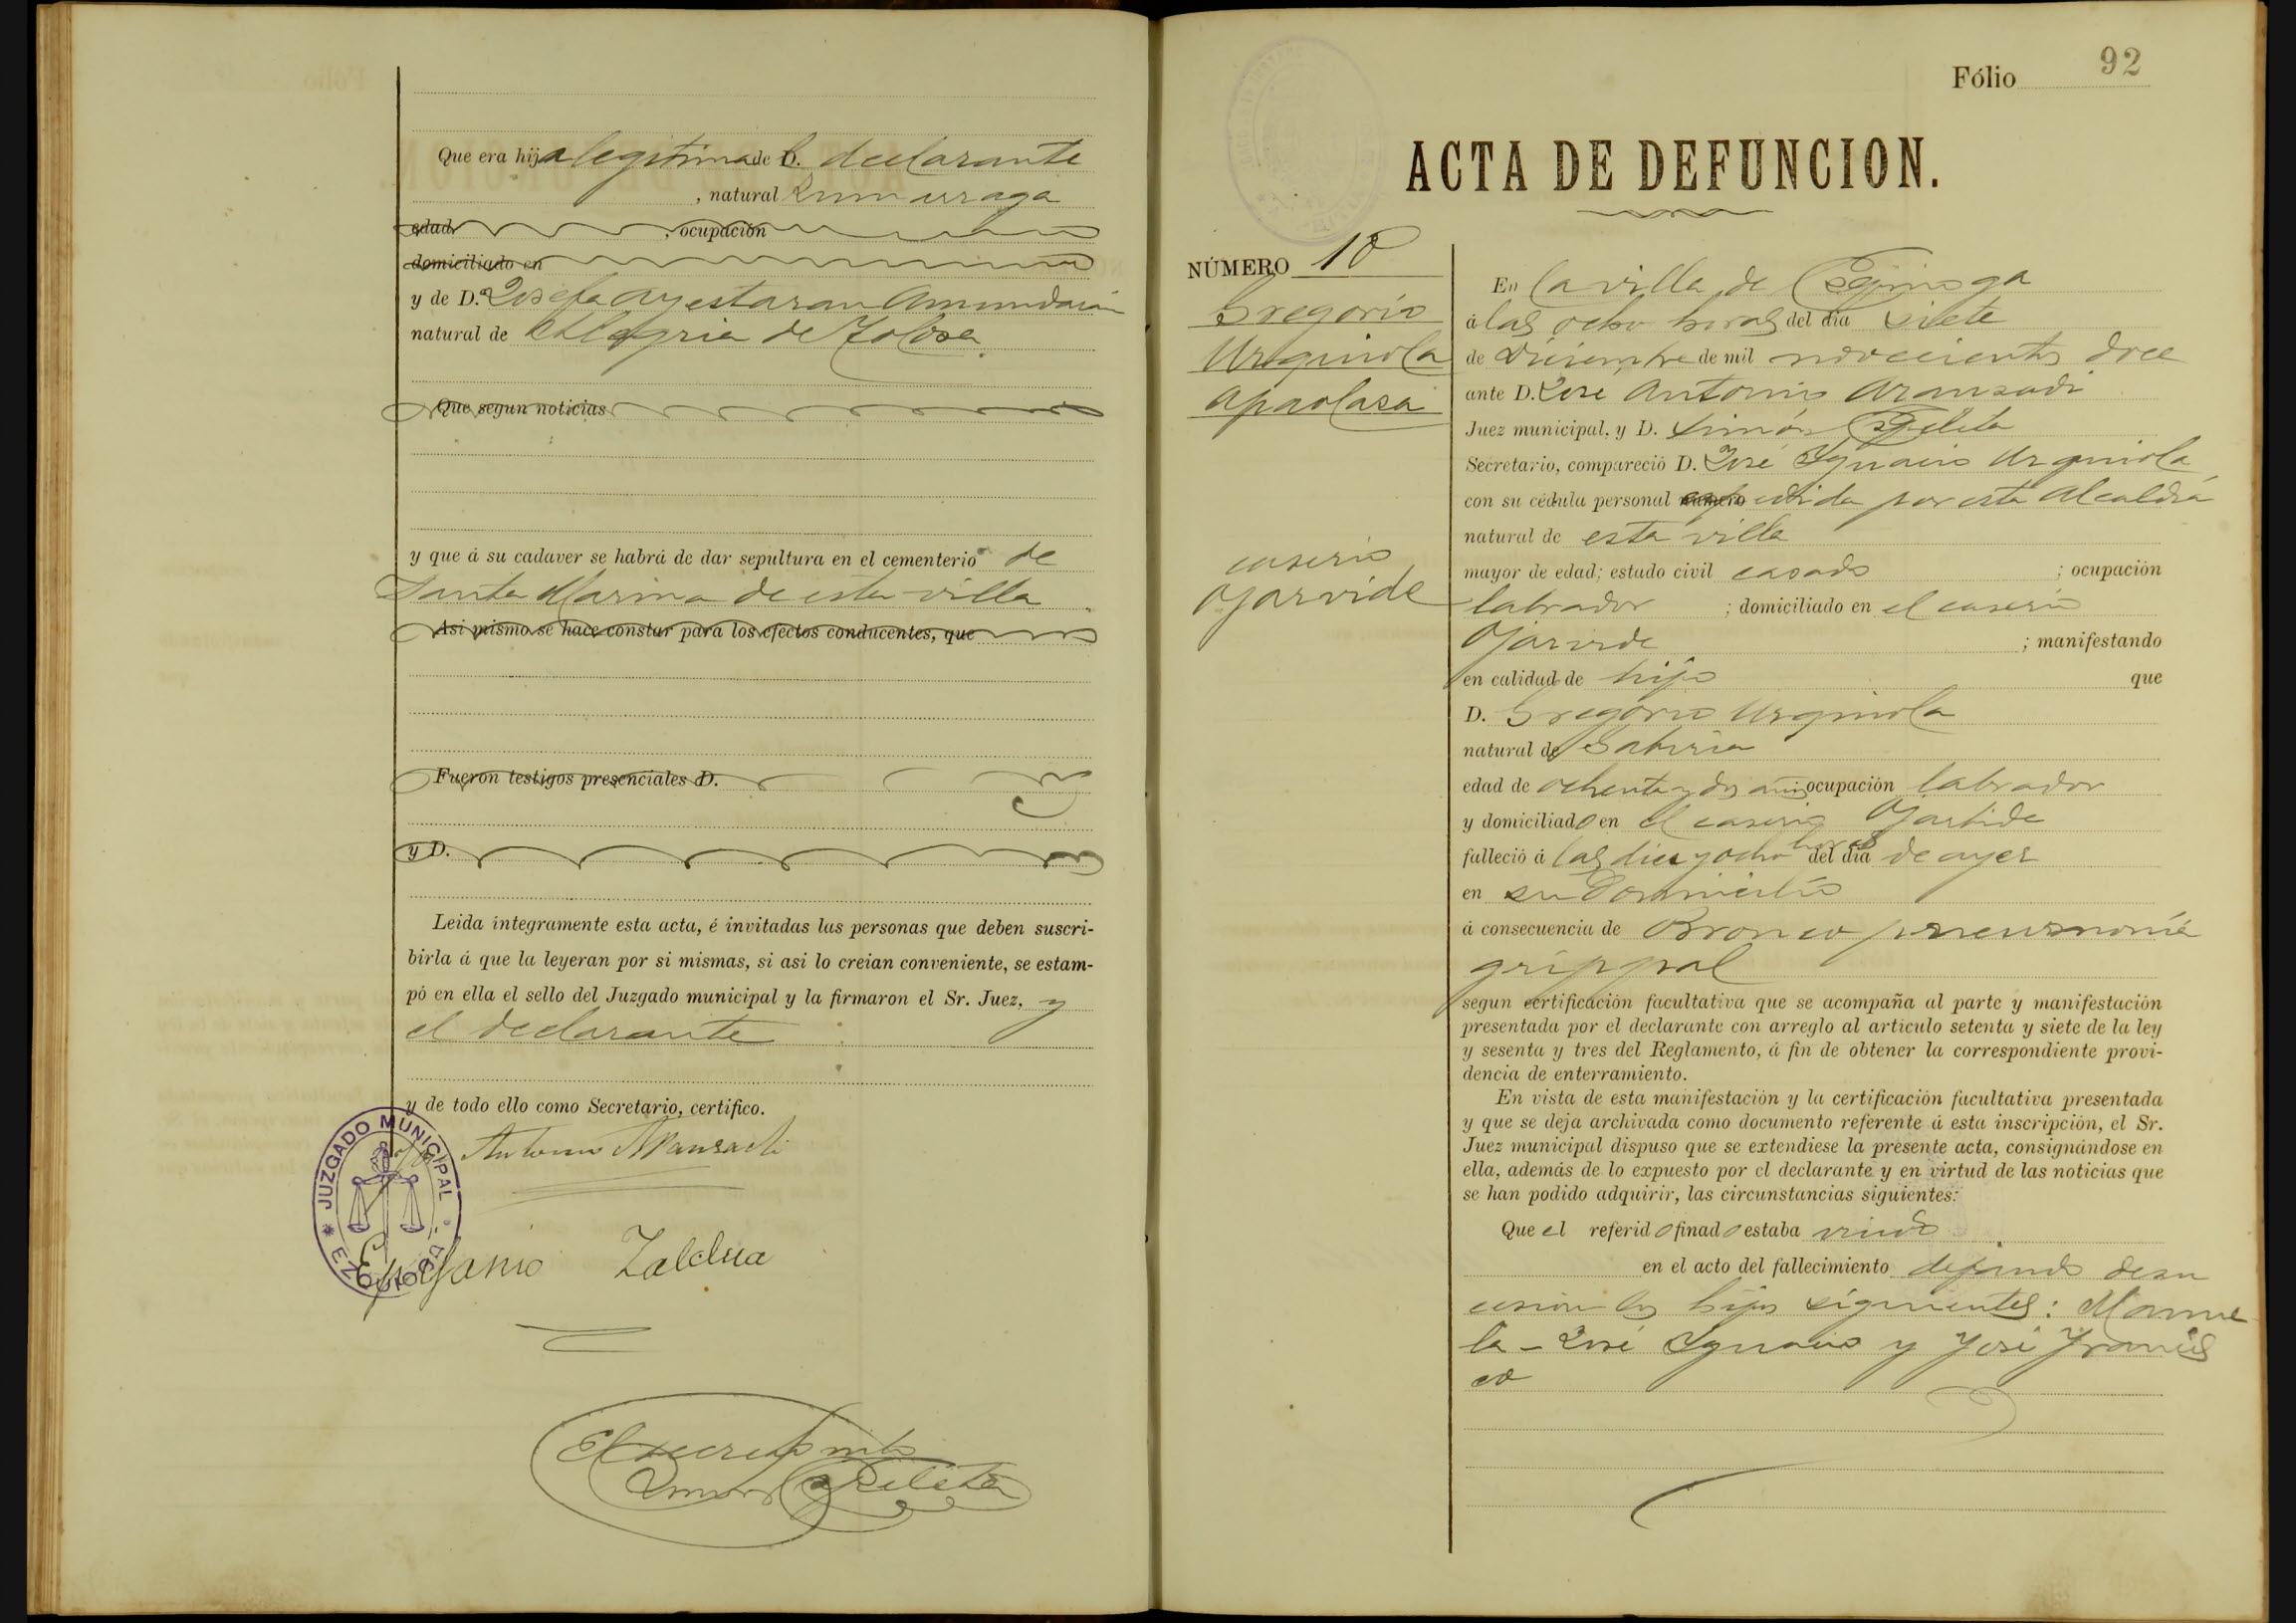 Que era hija legítima de D. declarante
, natural Zumarraga
edad , ocupación
domiciliado en
y de D. Josefa Ayestaran Amundarain
natural de Alegria de Tolosa.
Que segun noticias
y que á su cadaver se habrá de dar sepultura en el cementerio de
Santa Marina de esta villa
Asi mismo se hace constar para los efectos conducentes, que
Fueron testigos presenciales D.
y D.
Leida íntegramente esta acta, é invitadas las personas que deben suscri-
birla á que la leyeran por si mismas, si asi lo creian conveniente, se estam-
pó en ella el sello del Juzgado municipal y la firmaron el Sr. Juez, y
el declarante
y de todo ello como Secretario, certifico.
JUZGADO MUNICIPAL
Antonio Aranzadi
Epifanio Zaldua
El secretario
Simon Egileta
Fólio 92
ACTA DE DEFUNCION.
NÚMERO 10
Gregorio
Urquiola
Apaolasa
caserio
Oyarvide
En la villa de Ezquioga
á las ocho horas del dia siete
de Diciembre de mil novecientos doce
ante D. José Antonio Aranzadi
Juez municipal, y D. Simón Egileta
Secretario, compareció D. José Ygnacio Urquiola
con su cédula personal número expedida por esta Alcaldía
natural de esta villa
mayor de edad; estado civil casado ; ocupación
labrador ; domiciliado en el caserio
Oyarvide ; manifestando
en calidad de hijo que
D. Gregorio Urquiola
natural de Gabiria
edad de ochenta y dos años ocupación labrador
y domiciliado en el caserio Oyarbide
falleció á las diez y ocho horas del dia de ayer
en su Domicilio
á consecuencia de Bronco pneumonía
grippal
segun certificación facultativa que se acompaña al parte y manifestación
presentada por el declarante con arreglo al artículo setenta y siete de la ley
y sesenta y tres del Reglamento, á fin de obtener la correspondiente provi-
dencia de enterramiento.
En vista de esta manifestación y la certificación facultativa presentada
y que se deja archivada como documento referente á esta inscripción, el Sr.
Juez municipal dispuso que se extendiese la presente acta, consignándose en
ella, además de lo expuesto por el declarante y en virtud de las noticias que
se han podido adquirir, las circunstancias siguientes:
Que el referido finado estaba viudo
en el acto del fallecimiento dejando de su
cesión los hijos siguientes: Manue
la - José Ygnacio y José Francis
co